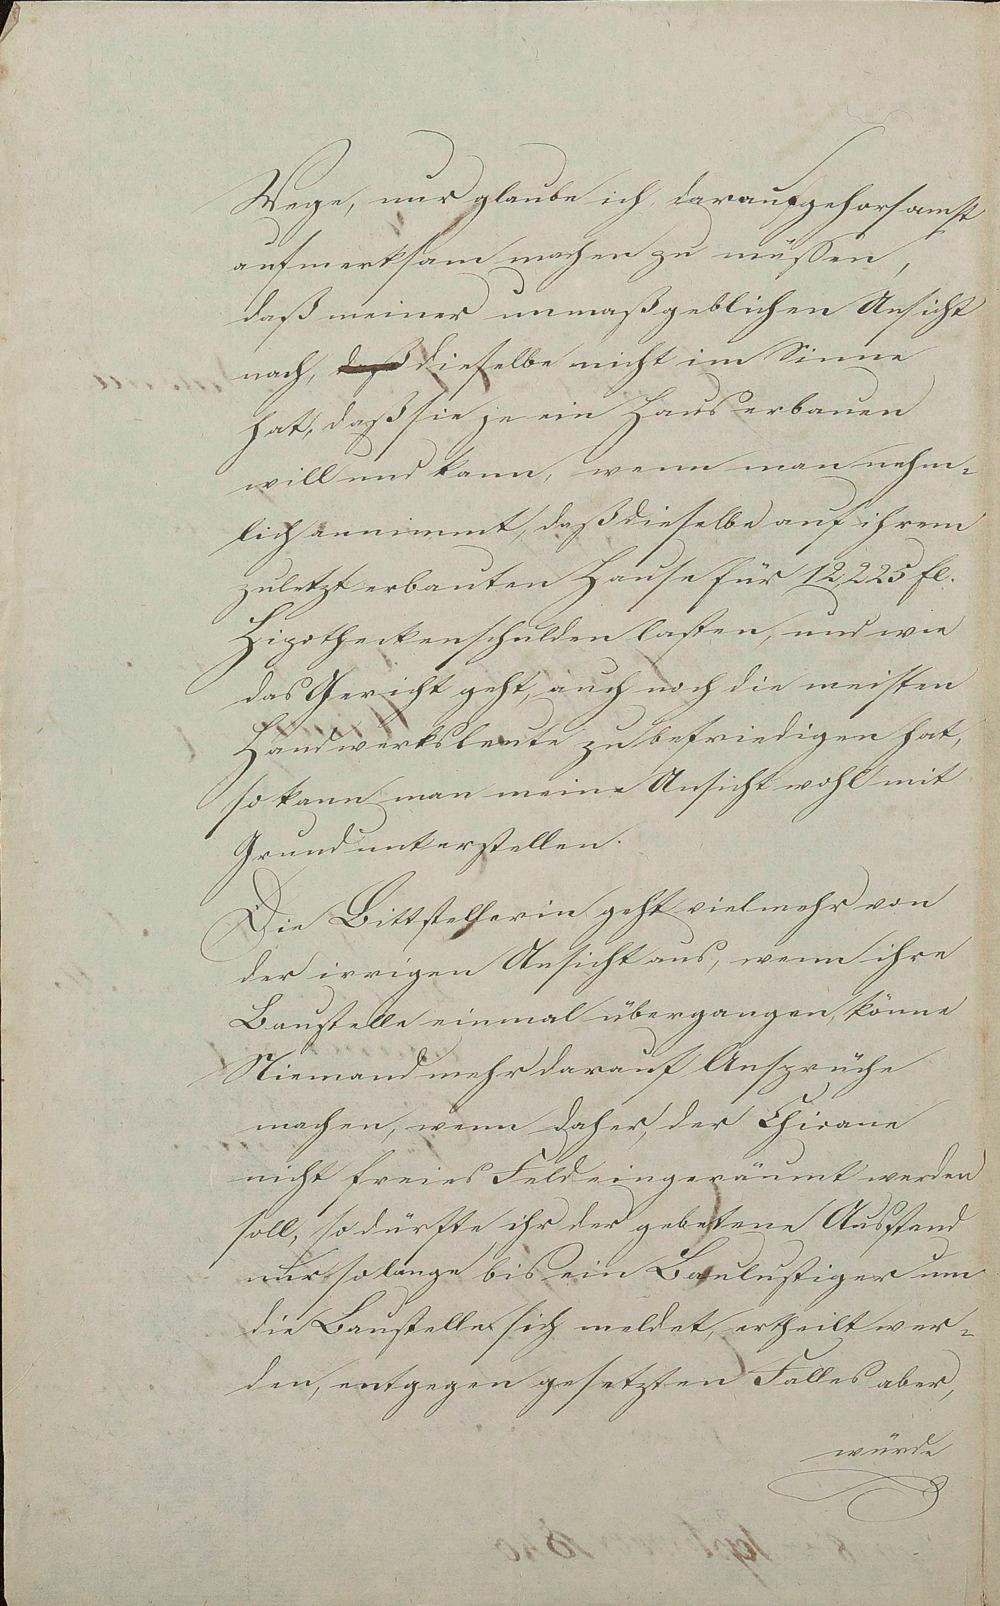 Wege, nur glaube ich darauf gehorsamst
aufmerksam machen zu müssen,
daß meiner unmaßgeblichen Ansicht
nach, daß dieselbe nicht im Sinne
hat, daß sie je ein Haus erbauen
will und kann, wenn man nehm-
lich annimmt, daß dieselbe auf ihrem
zuletzt erbauten Hause für 12,225 fl.
Hipotheckenschulden lasten, und wie
das Gericht geht, auch noch die meisten
Handwerksleute zu befriedigen hat,
so kann man meine Ansicht wohl mit
Grund unterstellen.
Die Bittstellerin geht vielmehr von
der irrigen Ansicht aus, wenn ihre
Baustelle einmal übergangen, könne
Niemand mehr darauf Ansprüche
machen, wenn daher, der Chicane
nicht freies Feld eingeräumt werden
soll, so dürfte ihr der gebetene Ausstand
nur solange bis ein Baulustiger um
die Baustelle sich meldet, ertheilt wer-
den, entgegen gesetzten Falles aber,
würde